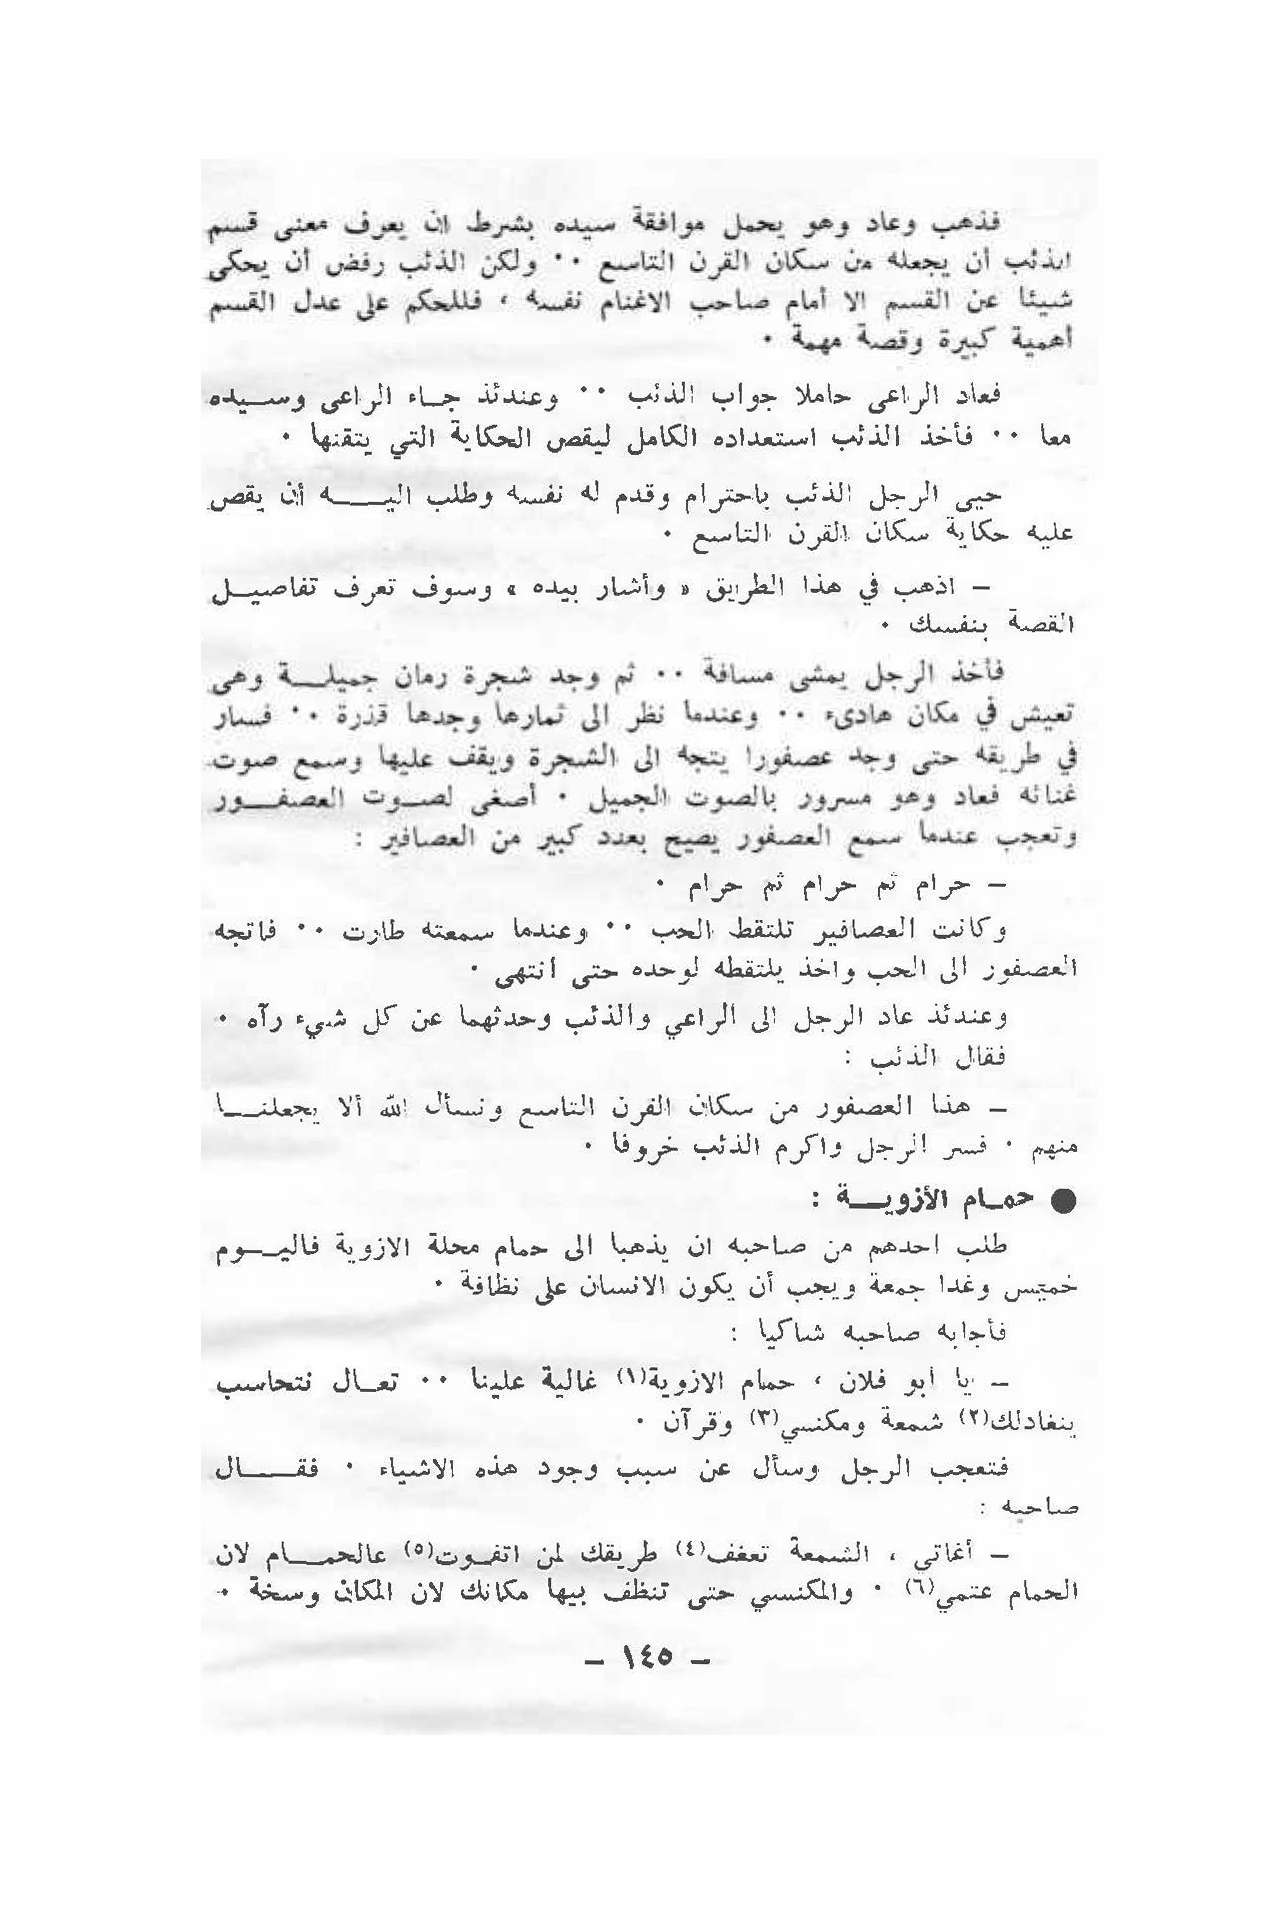 فذهب وعاد وهو يحمل موافقة سيده بشرط ان يعرف معنى قسم
الذئب أن يجعله من سكان القرن التاسع ٠٠ ولكن الذئب رفض أن يحكى
شيئا عن القسم الا أمام صاحب الاغنام نفسه ، فللحكم على عدل القسم
أهمية كبيرة وقصة مهمة ٠
فعاد الراعى حاملا جواب الذئب ٠٠ وعندئذ جاء الراعى وسيده
معا ٠٠ فأخذ الذئب استعداده الكامل ليقص الحكاية التي يتقنها ٠
حيى الرجل الذئب باحترام وقدم له نفسه وطلب اليه أن يقص
عليه حكاية سكان القرن التاسع ٠
– اذهب في هذا الطريق « وأشار بيده » وسوف تعرف تفاصيل
القصة بنفسك ٠
فأخذ الرجل يمشى مسافة ٠٠ ثم وجد شجرة رمان جميلة وهى
تعيش في مكان هادىء ٠٠ وعندما نظر الى ثمارها وجدها قذرة ٠٠ فسار
في طريقه حتى وجد عصفورا يتجه الى الشجرة ويقف عليها وسمع صوت
غنائه فعاد وهو مسرور بالصوت الجميل ٠ أصغى لصوت العصفور
وتعجب عندما سمع العصفور يصيح بعدد كبير من العصافير :
– حرام ثم حرام ثم حرام ٠
وكانت العصافير تلتقط الحب ٠٠ وعندما سمعته طارت ٠٠ فاتجه
العصفور الى الحب واخذ يلتقطه لوحده حتى انتهى ٠
وعندئذ عاد الرجل الى الراعي والذئب وحدثهما عن كل شيء رآه ٠
فقال الذئب :
– هذا العصفور من سكان القرن التاسع ونسأل الله ألا يجعلنا
منهم ٠ فسر الرجل واكرم الذئب خروفا ٠
● حمام الأزوية :
طلب احدهم من صاحبه ان يذهبا الى حمام محلة الازوية فاليوم
خميس وغدا جمعة ويجب أن يكون الانسان على نظافة ٠
فأجابه صاحبه شاكيا :
– يا ابو فلان ، حمام الازوية(١) غالية علينا ٠٠ تعال نتحاسب
ينغادلك(٢) شمعة ومكنسي(٣) وقرآن ٠
فتعجب الرجل وسأل عن سبب وجود هذه الاشياء ٠ فقال
صاحبه :
– أغاتي ، الشمعة تعغف(٤) طريقك لمن اتفوت(٥) عالحمام لان
الحمام عتمي(٦) ٠ والمكنسي حتى تنظف بيها مكانك لان المكان وسخة ٠
– ١٤٥ –